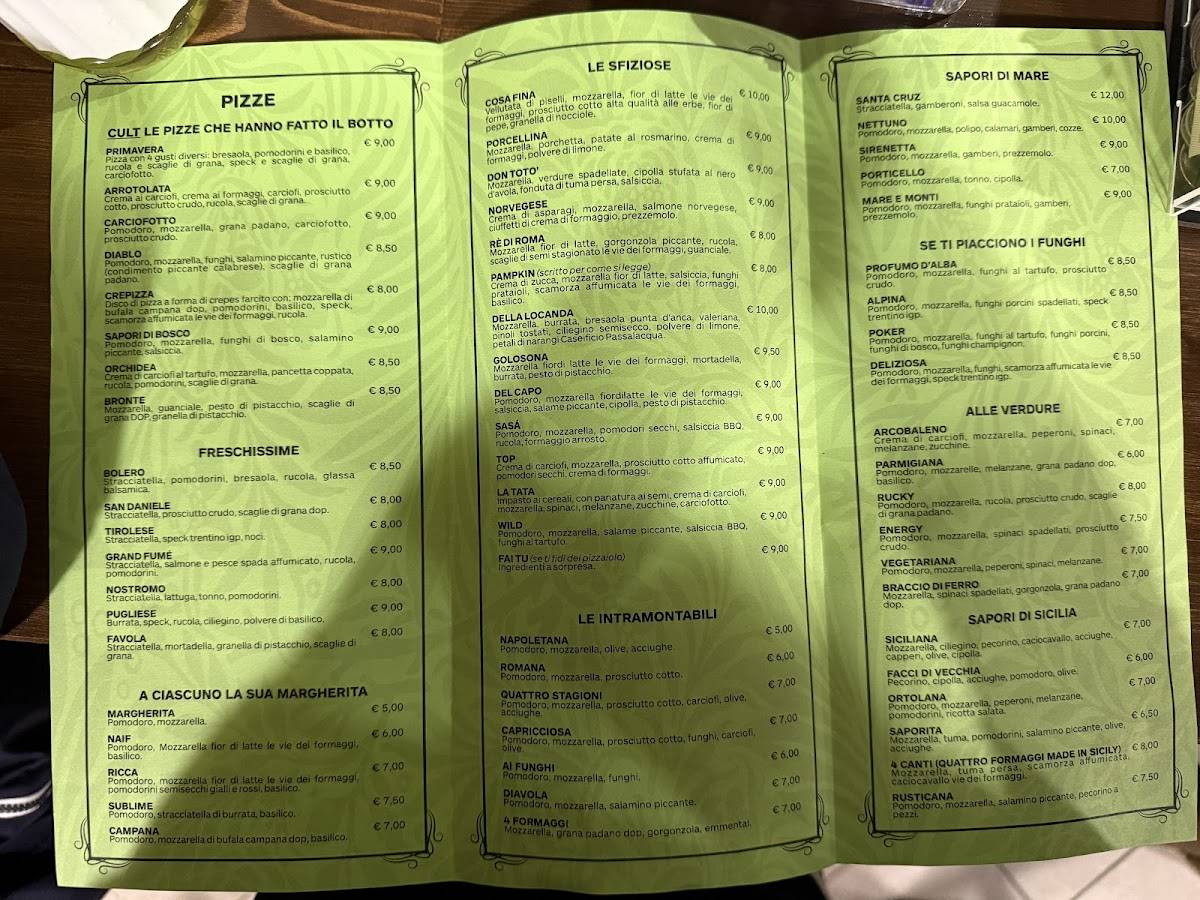 PIZZE
CULT LE PIZZE CHE HANNO FATTO IL BOTTO
PRIMAVERA € 9,00
Pizza con 4 gusti diversi: bresaola, pomodorini e basilico,
rucola e scaglie di grana, speck e scaglie di grana,
carciofotto.
ARROTOLATA € 9,00
Crema ai carciofi, crema ai formaggi, carciofi, prosciutto
cotto, prosciutto crudo, rucola, scaglie di grana.
CARCIOFOTTO € 9,00
Pomodoro, mozzarella, grana padano, carciofotto,
prosciutto crudo.
DIABLO € 8,50
Pomodoro, mozzarella, funghi, salamino piccante, rustico
(condimento piccante calabrese), scaglie di grana
padano.
CREPIZZA € 8,00
Disco di pizza a forma di crepes farcito con: mozzarella di
bufala campana dop, pomodorini, basilico, speck,
scamorza affumicata le vie dei formaggi, rucola.
SAPORI DI BOSCO € 9,00
Pomodoro, mozzarella, funghi di bosco, salamino
piccante, salsiccia.
ORCHIDEA € 8,50
Crema di carciofi al tartufo, mozzarella, pancetta coppata,
rucola, pomodorini, scaglie di grana.
BRONTE € 8,50
Mozzarella, guanciale, pesto di pistacchio, scaglie di
grana DOP, granella di pistacchio.
FRESCHISSIME
BOLERO € 8,50
Stracciatella, pomodorini, bresaola, rucola, glassa
balsamica.
SAN DANIELE € 8,00
Stracciatella, prosciutto crudo, scaglie di grana dop.
TIROLESE € 8,00
Stracciatella, speck trentino igp, noci.
GRAND FUMÉ € 9,00
Stracciatella, salmone e pesce spada affumicato, rucola,
pomodorini.
NOSTROMO € 8,00
Stracciatella, lattuga, tonno, pomodorini.
PUGLIESE € 9,00
Burrata, speck, rucola, ciliegino, polvere di basilico.
FAVOLA € 8,00
Stracciatella, mortadella, granella di pistacchio, scaglie di
grana.
A CIASCUNO LA SUA MARGHERITA
MARGHERITA € 5,00
Pomodoro, mozzarella.
NAIF € 6,00
Pomodoro, Mozzarella fior di latte le vie dei formaggi,
basilico.
RICCA € 7,00
Pomodoro, mozzarella fior di latte le vie dei formaggi,
pomodorini semisecchi gialli e rossi, basilico.
SUBLIME € 7,50
Pomodoro, stracciatella di burrata, basilico.
CAMPANA € 7,00
Pomodoro, mozzarella di bufala campana dop, basilico.
LE SFIZIOSE
COSA FINA € 10,00
Vellutata di piselli, mozzarella, fior di latte le vie dei
formaggi, prosciutto cotto alta qualità alle erbe, fior di
pepe, granella di nocciole.
PORCELLINA € 9,00
Mozzarella, porchetta, patate al rosmarino, crema di
formaggi, polvere di limone.
DON TOTO' € 9,00
Mozzarella, verdure spadellate, cipolla stufata al nero
d'avola, fonduta di tuma persa, salsiccia.
NORVEGESE € 9,00
Crema di asparagi, mozzarella, salmone norvegese,
ciuffetti di crema di formaggio, prezzemolo.
RÈ DI ROMA € 8,00
Mozzarella fior di latte, gorgonzola piccante, rucola,
scaglie di semi stagionato le vie dei formaggi, guanciale.
PAMPKIN (scritto per come si legge) € 8,00
Crema di zucca, mozzarella fior di latte, salsiccia, funghi
prataioli, scamorza affumicata le vie dei formaggi,
basilico.
DELLA LOCANDA € 10,00
Mozzarella, burrata, bresaola punta d'anca, valeriana,
pinoli tostati, ciliegino semisecco, polvere di limone,
petali di narangi Caseificio Passalacqua.
GOLOSONA € 9,50
Mozzarella fiordi latte le vie dei formaggi, mortadella,
burrata, pesto di pistacchio.
DEL CAPO € 9,00
Pomodoro, mozzarella fiordilatte le vie dei formaggi,
salsiccia, salame piccante, cipolla, pesto di pistacchio.
SASÀ € 9,00
Pomodoro, mozzarella, pomodori secchi, salsiccia BBQ,
rucola, formaggio arrosto.
TOP € 9,00
Crema di carciofi, mozzarella, prosciutto cotto affumicato,
pomodori secchi, crema di formaggi.
LA TATA € 9,00
Impasto ai cereali, con panatura ai semi, crema di carciofi,
mozzarella, spinaci, melanzane, zucchine, carciofotto.
WILD € 9,00
Pomodoro, mozzarella, salame piccante, salsiccia BBQ,
funghi al tartufo.
FAI TU (se ti fidi dei pizzaiolo) € 9,00
Ingredienti a sorpresa.
LE INTRAMONTABILI
NAPOLETANA € 5,00
Pomodoro, mozzarella, olive, acciughe.
ROMANA € 6,00
Pomodoro, mozzarella, prosciutto cotto.
QUATTRO STAGIONI € 7,00
Pomodoro, mozzarella, prosciutto cotto, carciofi, olive,
acciughe.
CAPRICCIOSA € 7,00
Pomodoro, mozzarella, prosciutto cotto, funghi, carciofi,
olive.
AI FUNGHI € 6,00
Pomodoro, mozzarella, funghi.
DIAVOLA € 7,00
Pomodoro, mozzarella, salamino piccante.
4 FORMAGGI € 7,00
Mozzarella, grana padano dop, gorgonzola, emmental.
SAPORI DI MARE
SANTA CRUZ € 12,00
Stracciatella, gamberoni, salsa guacamole.
NETTUNO € 10,00
Pomodoro, mozzarella, polipo, calamari, gamberi, cozze.
SIRENETTA € 9,00
Pomodoro, mozzarella, gamberi, prezzemolo.
PORTICELLO € 7,00
Pomodoro, mozzarella, tonno, cipolla.
MARE E MONTI € 9,00
Pomodoro, mozzarella, funghi prataioli, gamberi,
prezzemolo.
SE TI PIACCIONO I FUNGHI
PROFUMO D'ALBA € 8,50
Pomodoro, mozzarella, funghi al tartufo, prosciutto
crudo.
ALPINA € 8,50
Pomodoro, mozzarella, funghi porcini spadellati, speck
trentino igp.
POKER € 8,50
Pomodoro, mozzarella, funghi al tartufo, funghi porcini,
funghi di bosco, funghi champignon.
DELIZIOSA € 8,50
Pomodoro, mozzarella, funghi, scamorza affumicata le vie
dei formaggi, speck trentino igp.
ALLE VERDURE
ARCOBALENO € 7,00
Crema di carciofi, mozzarella, peperoni, spinaci,
melanzane, zucchine.
PARMIGIANA € 6,00
Pomodoro, mozzarelle, melanzane, grana padano dop,
basilico.
RUCKY € 8,00
Pomodoro, mozzarella, rucola, prosciutto crudo, scaglie
di grana padano.
ENERGY € 7,50
Pomodoro, mozzarella, spinaci spadellati, prosciutto
crudo.
VEGETARIANA € 7,00
Pomodoro, mozzarella, peperoni, spinaci, melanzane.
BRACCIO DI FERRO € 7,00
Mozzarella, spinaci spadellati, gorgonzola, grana padano
dop.
SAPORI DI SICILIA
SICILIANA € 7,00
Mozzarella, ciliegino, pecorino, caciocavallo, acciughe,
capperi, olive, cipolla.
FACCI DI VECCHIA € 6,00
Pecorino, cipolla, acciughe, pomodoro, olive.
ORTOLANA € 7,00
Pomodoro, mozzarella, peperoni, melanzane,
pomodorini, ricotta salata.
SAPORITA € 6,50
Mozzarella, tuma, pomodorini, salamino piccante, olive,
acciughe.
4 CANTI (QUATTRO FORMAGGI MADE IN SICILY) € 8,00
Mozzarella, tuma persa, scamorza affumicata,
caciocavallo vie dei formaggi.
RUSTICANA € 7,50
Pomodoro, mozzarella, salamino piccante, pecorino a
pezzi.